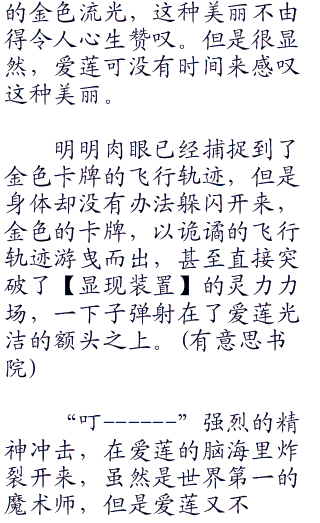 的金色流光，这种美丽不由
得令人心生赞叹。但是很显
然，爱莲可没有时间来感叹
这种美丽。
明明肉眼已经捕捉到了
金色卡牌的飞行轨迹，但是
身体却没有办法躲闪开来，
金色的卡牌，以诡谲的飞行
轨迹游曳而出，甚至直接突
破了【显现装置】的灵力力
场，一下子弹射在了爱莲光
洁的额头之上。(有意思书
院)
“叮------”强烈的精
神冲击，在爱莲的脑海里炸
裂开来，虽然是世界第一的
魔术师，但是爱莲又不